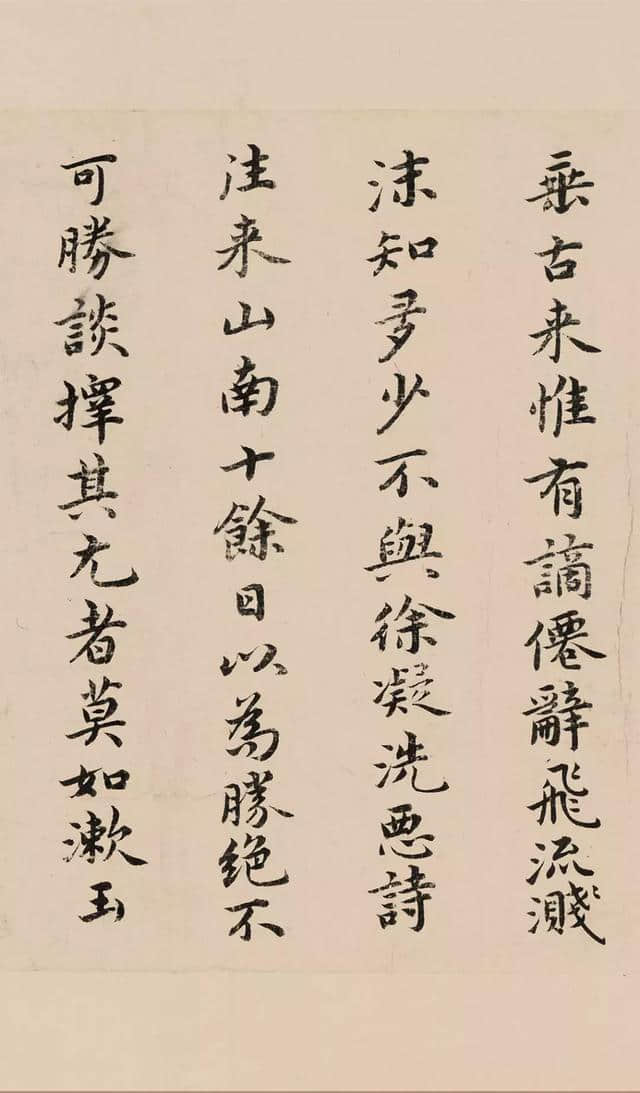 垂古来惟有謫僊辭飛流濺
沫知多少不與徐凝洗惡詩
往来山南十餘日以為勝絶不
可勝談擇其尤者莫如漱玉